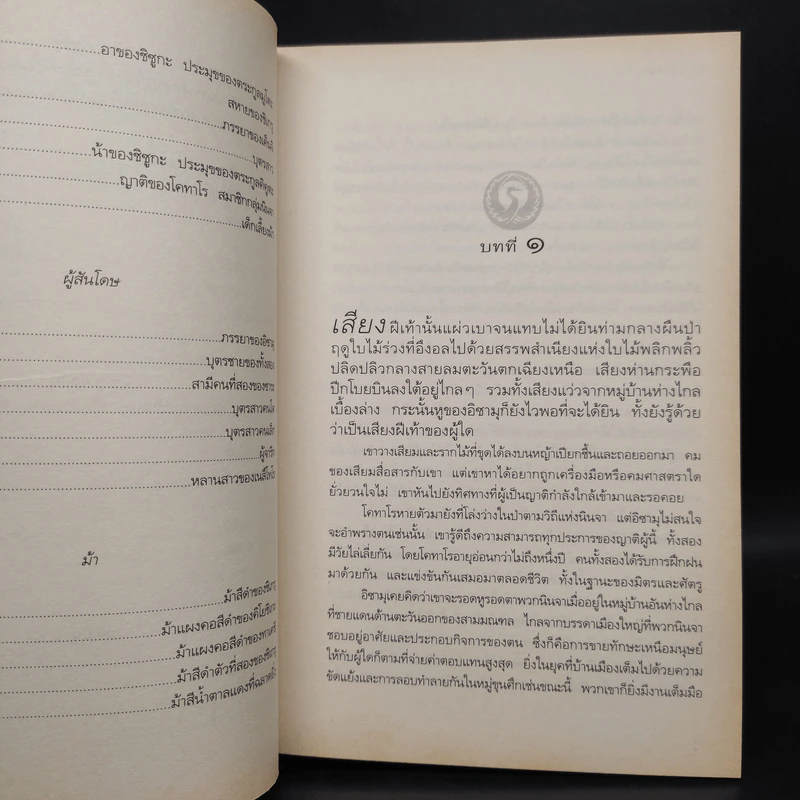 อาของชิซูกะ ประมุขของตระกูลมูโตะ
สหายของชิเงรุ
ภรรยาของเค็นจิ
บุตรสาว
น้าของชิซูกะ ประมุขของตระกูลคิคูตะ
ญาติของโคทาโร สมาชิกกลุ่มนินจา
เด็กเลี้ยงม้า
ผู้สันโดษ
ภรรยาของอิซามุ
บุตรชายของทั้งสอง
สามีคนที่สองของซาระ
บุตรสาวคนโต
บุตรสาวคนเล็ก
ผู้จาริก
หลานสาวของเนสึโทโร
ม้า
ม้าสีดำของชิเงรุ
ม้าแผงคอสีดำของคิโยชิเงะ
ม้าแผงคอสีดำของทาเคชิ
ม้าสีดำตัวที่สองของชิเงรุ
ม้าสีน้ำตาลแดงที่ฉลาดยิ่ง
บทที่ ๑
เสียงฝีเท้านั้นแผ่วเบาจนแทบไม่ได้ยินท่ามกลางผืนป่า
ฤดูใบไม้ร่วงที่อึงอลไปด้วยสรรพสำเนียงแห่งใบไม้พลิกพลิ้ว
ปลิดปลิวกลางสายลมตะวันตกเฉียงเหนือ เสียงห่านกระพือ
ปีกโบยบินลงใต้อยู่ไกลๆ รวมทั้งเสียงแว่วจากหมู่บ้านห่างไกล
เบื้องล่าง กระนั้นหูของอิซามุก็ยังไวพอที่จะได้ยิน ทั้งยังรู้ด้วย
ว่าเป็นเสียงฝีเท้าของผู้ใด
เขาวางเสียมและรากไม้ที่ขุดได้ลงบนหญ้าเปียกชื้นและถอยออกมา คม
ของเสียมสื่อสารกับเขา แต่เขาหาได้อยากถูกเครื่องมือหรือคมศาสตราใด
ยั่วยวนใจไม่ เขาหันไปยังทิศทางที่ผู้เป็นญาติกำลังใกล้เข้ามาและรอคอย
โคทาโรหายตัวมายังที่โล่งว่างในป่าตามวิถีแห่งนินจา แต่อิซามุไม่สนใจ
จะอำพรางตนเช่นนั้น เขารู้ดีถึงความสามารถทุกประการของญาติผู้นี้ ทั้งสอง
มีวัยไล่เลี่ยกัน โดยโคทาโรอายุอ่อนกว่าไม่ถึงหนึ่งปี คนทั้งสองได้รับการฝึกฝน
มาด้วยกัน และแข่งขันกันเสมอมาตลอดชีวิต ทั้งในฐานะของมิตรและศัตรู
อิซามุเคยคิดว่าเขาจะรอดหูรอดตาพวกนินจาเมื่ออยู่ในหมู่บ้านอันห่างไกล
ที่ชายแดนด้านตะวันออกของสามมณฑล ไกลจากบรรดาเมืองใหญ่ที่พวกนินจา
ชอบอยู่อาศัยและประกอบกิจการของตน ซึ่งก็คือการขายทักษะเหนือมนุษย์
ให้กับผู้ใดก็ตามที่จ่ายค่าตอบแทนสูงสุด ยิ่งในยุคที่บ้านเมืองเต็มไปด้วยความ
ขัดแย้งและการลอบทำลายกันในหมู่ขุนศึกเช่นขณะนี้ พวกเขาก็ยิ่งมีงานเต็มมือ